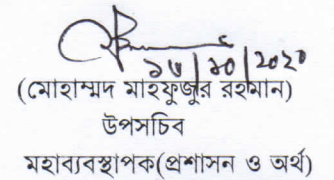 ১৮/১০/২০২০
(মোহাম্মদ মাহফুজুর রহমান)
উপসচিব
মহাব্যবস্থাপক(প্রশাসন ও অর্থ)